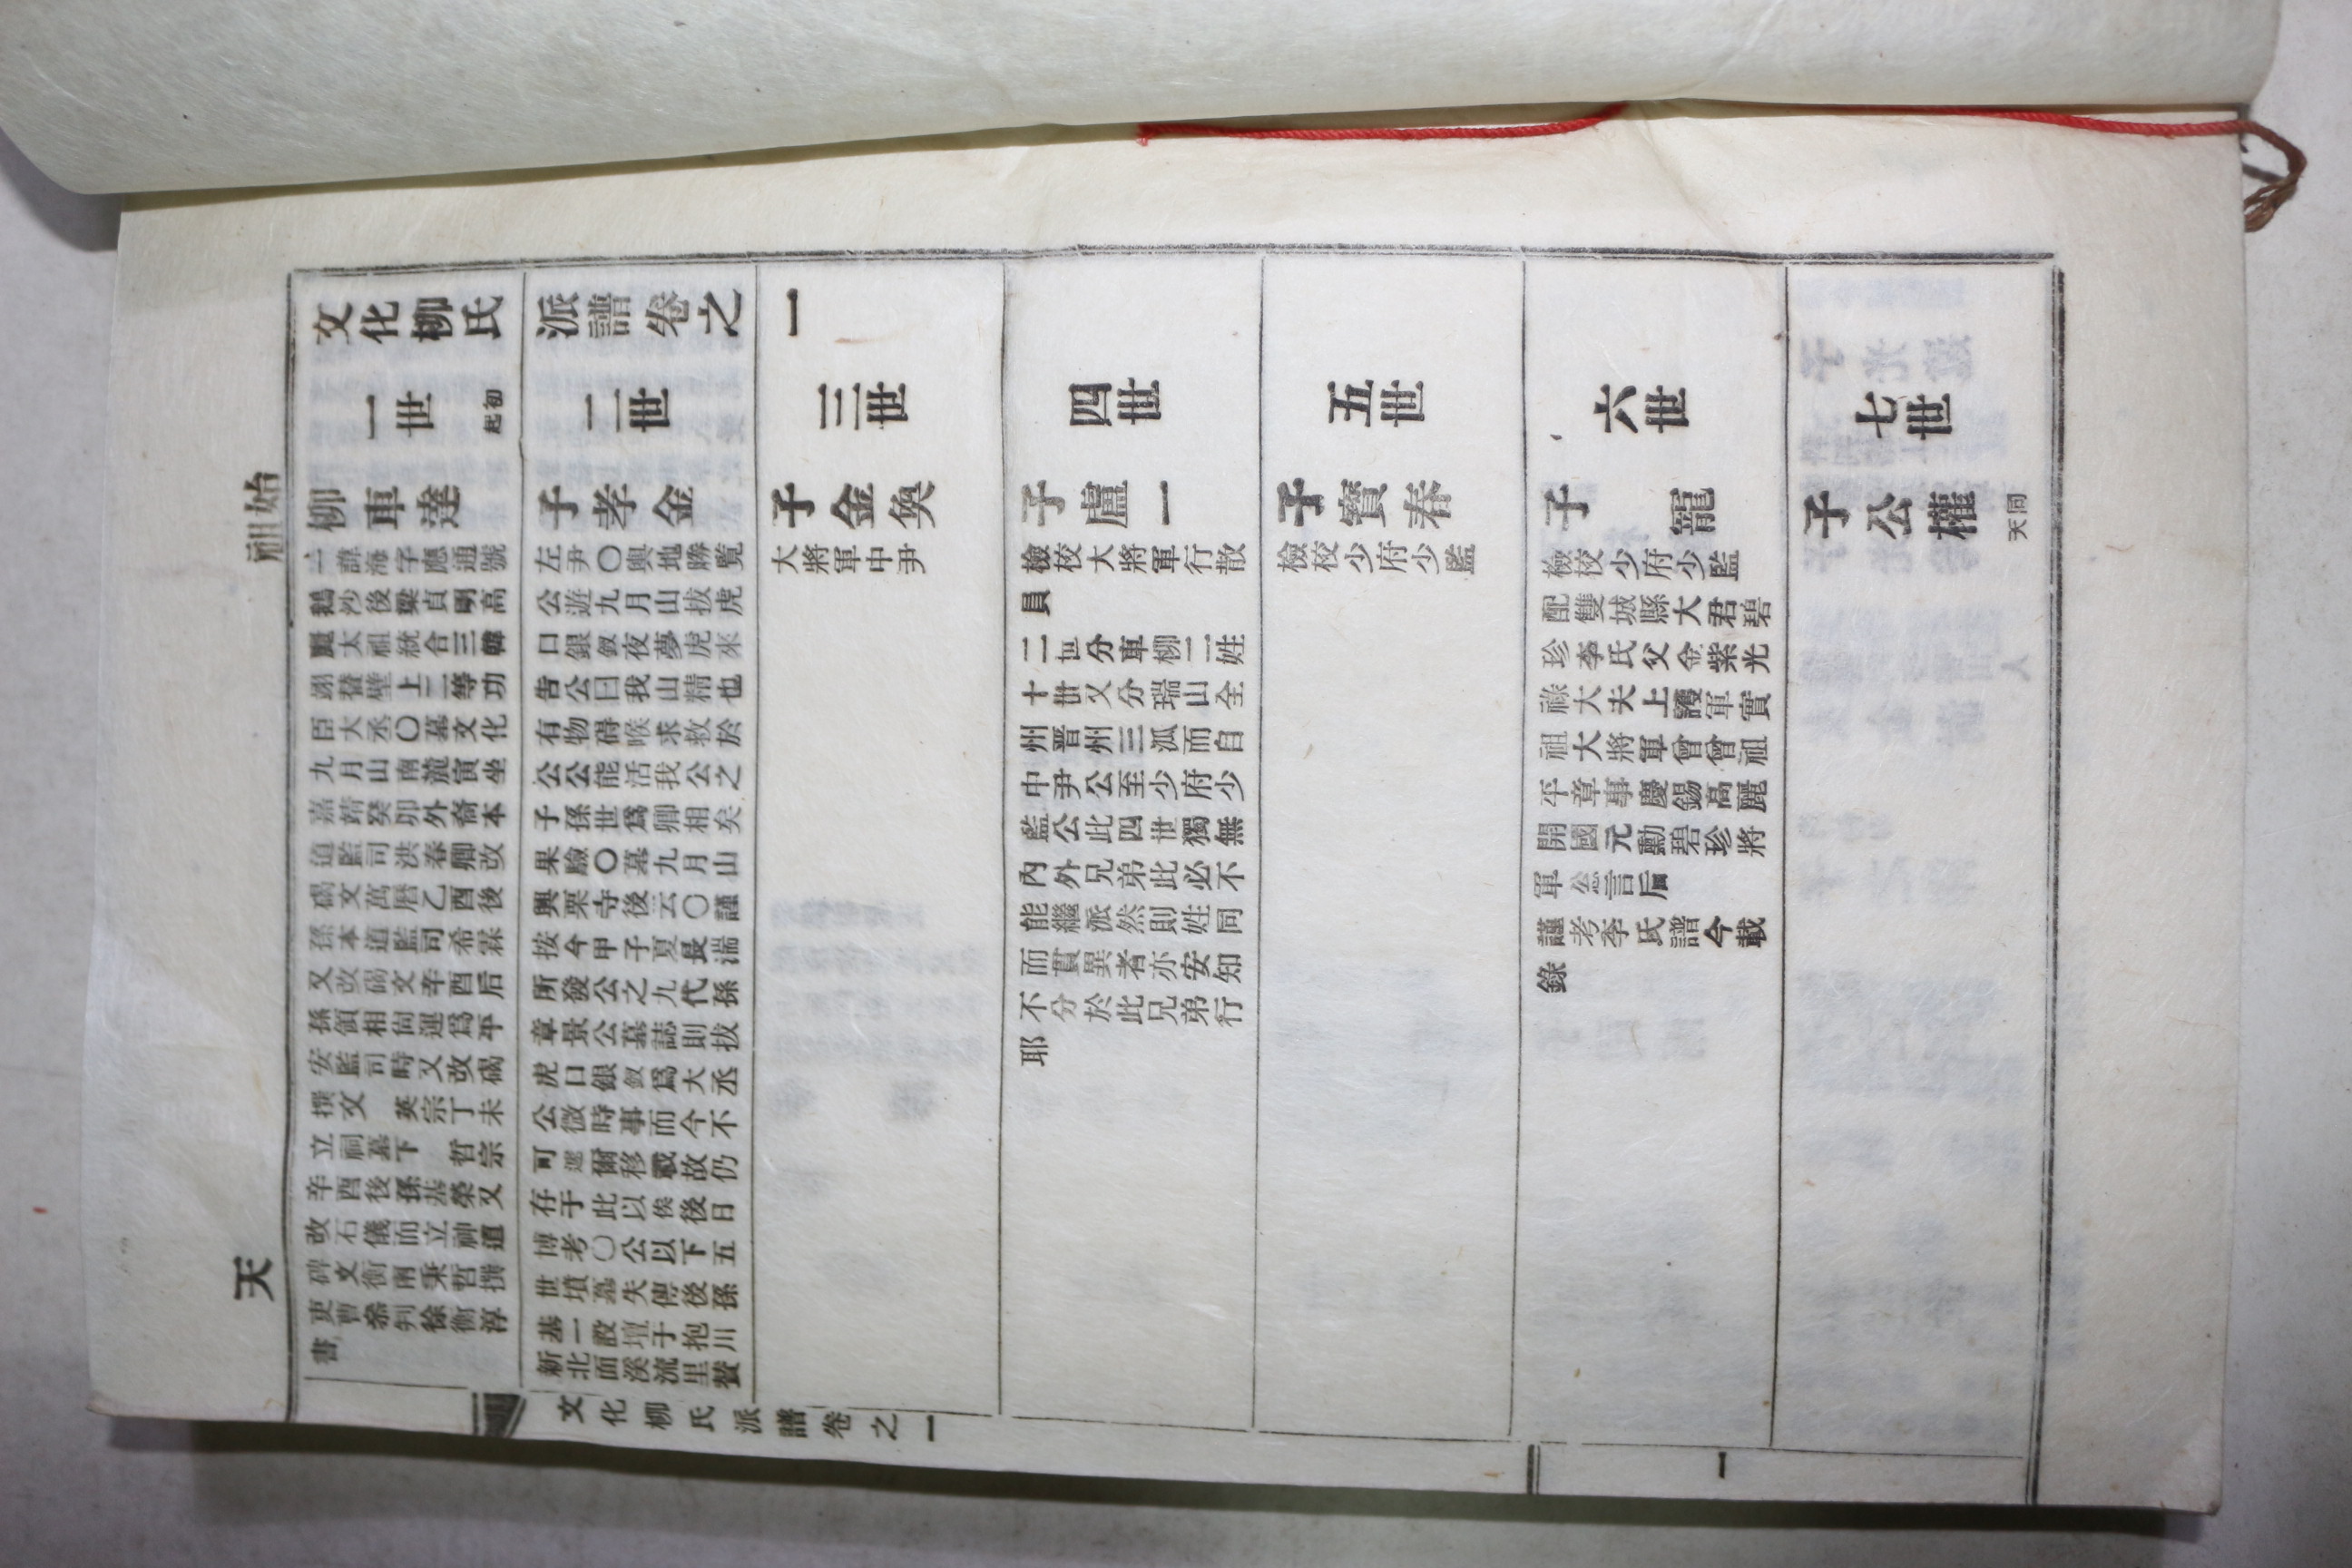 文化柳氏派譜卷之一
始祖
天
一世
初起
柳車達
一諱海字應通號
鵝沙後梁貞明高
麗太祖統合三韓
翊贊壁上二等功
臣大丞〇墓文化
九月山南麓寅坐
嘉靖癸卯外裔本
道監司洪春卿改
碣文萬曆乙酉後
孫本道監司希霖
又改碣文辛酉后
孫領相尙運爲平
安監司時又改碣
撰文 英宗丁未
立祠墓下 哲宗
辛酉後孫基榮又
改石儀而立神道
碑文衡南秉哲撰
吏曹叅判徐衡淳
書
二世
子孝金
左尹〇輿地勝覧
公遊九月山拔虎
口銀釵夜夢虎來
告公曰我山精也
有物碍喉求救於
公公能活我公之
子孫世爲卿相矣
果驗〇墓九月山
興栗寺後云〇謹
按今甲子夏長湍
所發公之九代孫
章景公墓誌則拔
虎口銀釵爲大丞
公微時事而今不
可遽爾移載故仍
存于此以俟後日
博考〇公以下五
世墳墓失傳後孫
基一設壇于抱川
新北面溪流里贊
三世
子金奐
大將軍中尹
四世
子盧一
檢校大將軍行散
員
二世分車柳二姓
十世又分瑞山全
州晋州三派而自
中尹公至少府少
監公此四世獨無
內外兄弟此必不
能繼派然則姓同
而貫異者亦安知
不分於此兄弟行
耶
五世
子寳春
檢校少府少監
六世
子 寵
檢校少府少監
配雙城縣大君碧
珍李氏父金紫光
祿大夫上護軍實
祖大將軍曾曾祖
平章事慶錫高麗
開國元勳碧珍將
軍忩言后
謹考李氏譜今載
錄
七世
子公權
同天
文化柳氏派譜卷之一
一